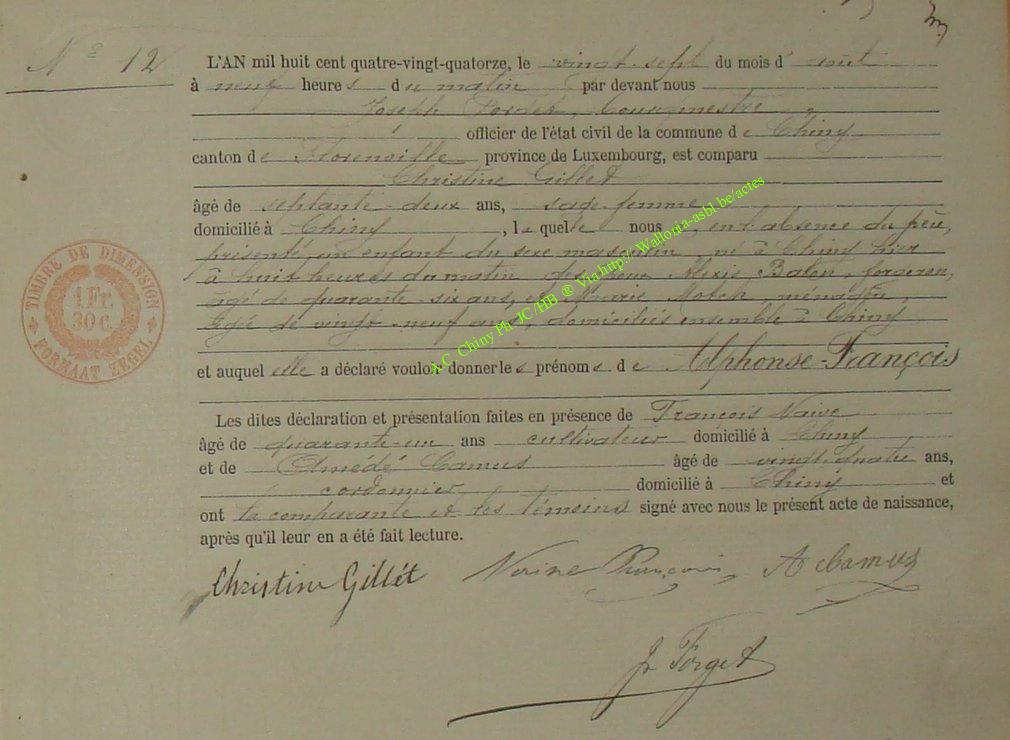 N° 12
L'AN mil huit cent quatre-vingt-quatorze, le vingt-sept du mois d'août
à neuf heures du matin par devant nous
Joseph Forget, bourgmestre
officier de l'état civil de la commune de Chiny
canton de Florenville province de Luxembourg, est comparu
Christine Gillet
âgé de septante-deux ans, sage-femme
domicilié à Chiny, laquelle nous, en l'absence du père,
présenté, un enfant du sexe masculin né à Chiny hier
à huit heures du matin des époux Alexis Balon, forgeron,
âgé de quarante-six ans, et Marie ménagère,
âgée de vingt-neuf ans, domiciliés ensemble à Chiny
et auquel elle a déclaré vouloir donner les prénoms de Alphonse-François
Les dites déclaration et présentation faites en présence de François
âgé de quarante-un ans cultivateur domicilié à Chiny
et de Amédé Camus âgé de vingt-quatre ans,
cordonnier domicilié à Chiny et
ont la comparante et les témoins signé avec nous le présent acte de naissance,
après qu'il leur en a été fait lecture.
Christine Gillét François A Camus
J. Forget
TIMBRE DE DIMENSION
1 Fr.
30 C.
FORMAAT ZEGEL
A.C Chiny Ph JC/HB ® Via http://Wallonia-asbl.be/actes